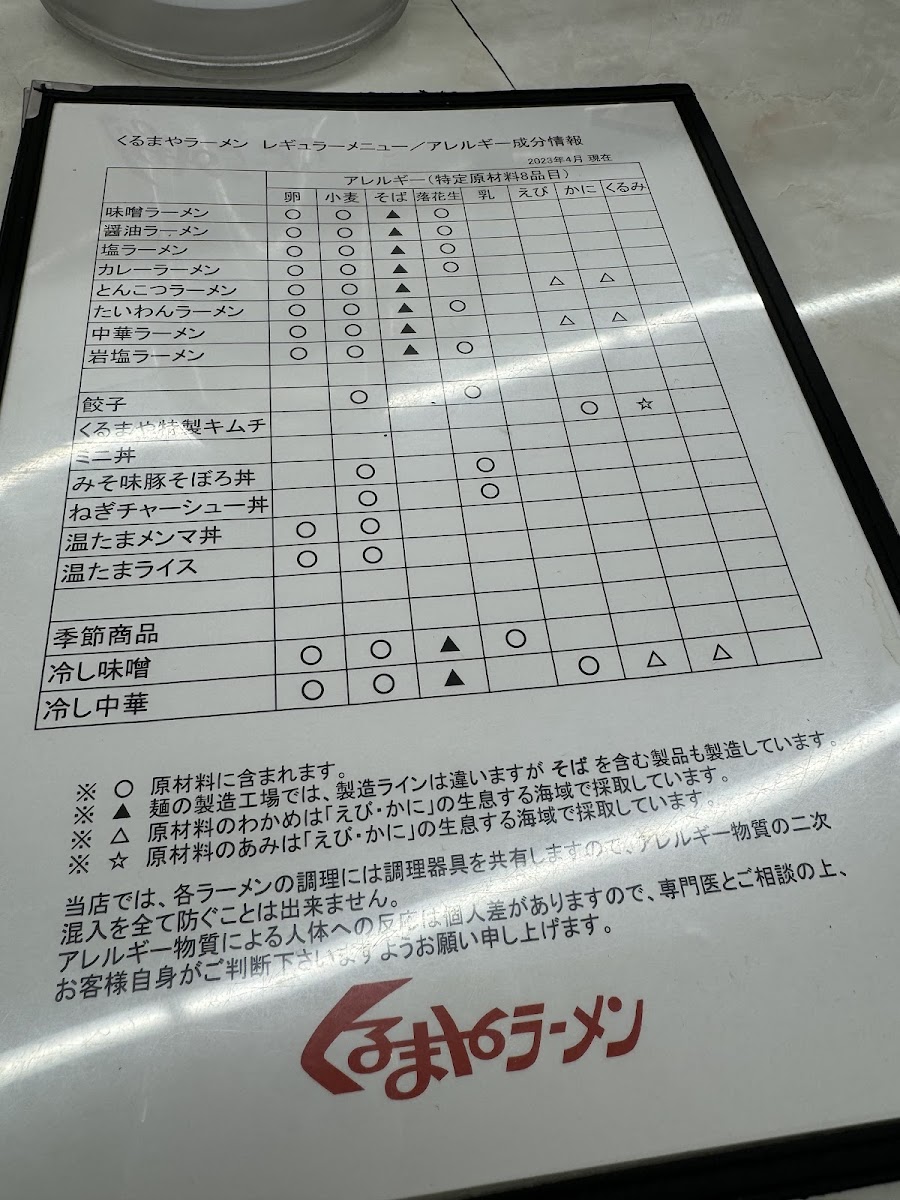 くるまやラーメン レギュラーメニュー/アレルギー成分情報
2023年4月 現在
アレルギー(特定原材料8品目)
卵 小麦 そば 落花生 乳 えび かに くるみ
味噌ラーメン ○ ○ ▲ ○
醤油ラーメン ○ ○ ▲ ○
塩ラーメン ○ ○ ▲ ○
カレーラーメン ○ ○ ▲ ○
とんこつラーメン ○ ○ ▲ △ △
たいわんラーメン ○ ○ ▲ ○
中華ラーメン ○ ○ ▲ △ △
岩塩ラーメン ○ ○ ▲ ○
餃子 ○ ○
くるまや特製キムチ ○ ☆
ミニ丼
みそ味豚そぼろ丼 ○ ○
ねぎチャーシュー丼 ○ ○
温たまメンマ丼 ○ ○
温たまライス ○ ○
季節商品
冷し味噌 ○ ○ ▲ ○
冷し中華 ○ ○ ▲ ○ △ △
※ ○ 原材料に含まれます。
※ ▲ 麺の製造工場では、製造ラインは違いますが そば を含む製品も製造しています。
※ △ 原材料のわかめは「えび・かに」の生息する海域で採取しています。
※ ☆ 原材料のあみは「えび・かに」の生息する海域で採取しています。
当店では、各ラーメンの調理には調理器具を共有しますので、アレルギー物質の二次
混入を全て防ぐことは出来ません。
アレルギー物質による人体への反応は個人差がありますので、専門医とご相談の上、
お客様自身がご判断下さいますようお願い申し上げます。
くるまやラーメン